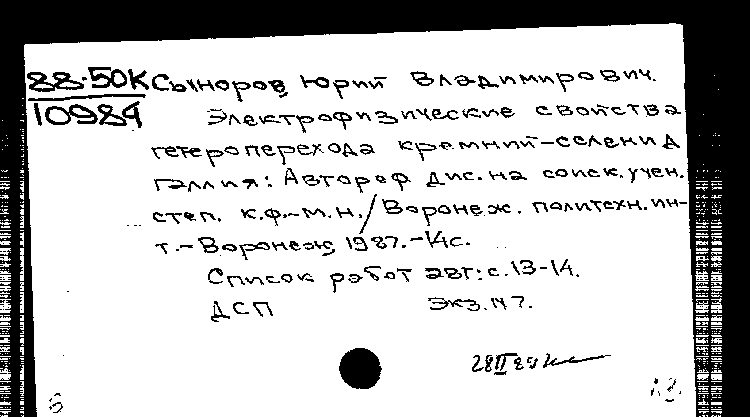 88-50К Сыноров Юрий Владимирович.
10984 Электрофизические свойства
гетероперехода кремний-селенид
галлия: Автореф дис. на соиск. учен.
степ. к.ф.-м.н. / Воронеж. политехн. ин-
т.- Воронеж, 1987.-14с.
Список работ авт: с. 13-14.
ДСП Экз. №7.
28 II